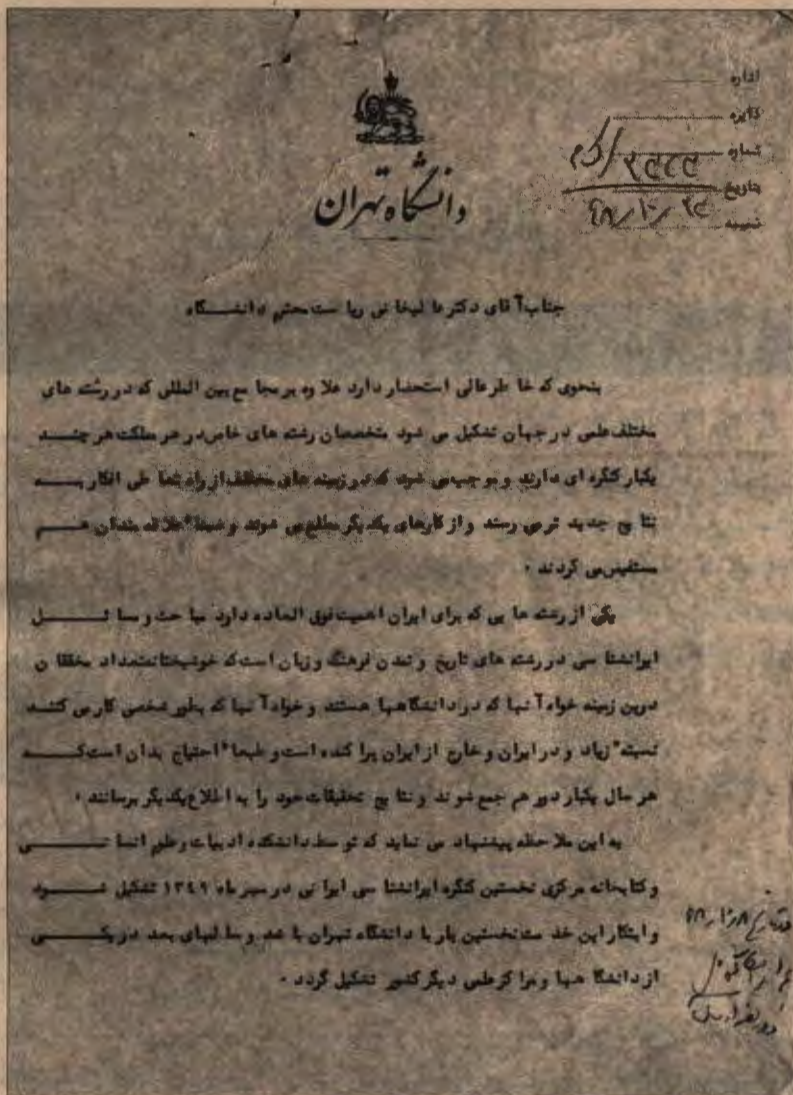 اداره
دایره
شماره
تاریخ
ضمیمه
دانشگاه تهران
جناب آقای دکتر عالیخانی ریاست محترم دانشگاه
بنحوی که خاطر عالی استحضار دارد علاوه بر مجامع بین المللی که در رشته های
مختلف علمی در جهان تشکیل می شود متخصصان رشته های خاص در هر مملکت هر چند
یکبار کنگره ای دارند و موجب می شود که در زمینه های مختلف از راه تعاطی افکار به
نتایج جدید تر می رسند و از کارهای یکدیگر مطلع می شوند و ضمنا" علاقه مندان هم
مستفیض می گردند .
یکی از رشته هایی که برای ایران اهمیت فوق العاده دارد مباحث و مسائل
ایرانشناسی در رشته های تاریخ و تمدن فرهنگ و زبان است که خوشبختانه تعداد محققان
درین زمینه خواه آنها که در دانشگاهها هستند و خواه آنها که بطور شخصی کار می کنند
نسبة" زیاد و در ایران و خارج از ایران پراکنده است و طبعا" احتیاج بدان است که
هر سال یکبار دور هم جمع شوند و نتایج تحقیقات خود را به اطلاع یکدیگر برسانند .
به این ملاحظه پیشنهاد می نماید که توسط دانشکده ادبیات و علوم انسانی
و کتابخانه مرکزی نخستین کنگره ایرانشناسی ایرانی در مهر ماه ۱۳۴۹ تشکیل شود
و ابتکار این خدمت نخستین بار با دانشگاه تهران باشد و سالهای بعد در یکی
از دانشگاهها و مراکز علمی دیگر کشور تشکیل گردد .